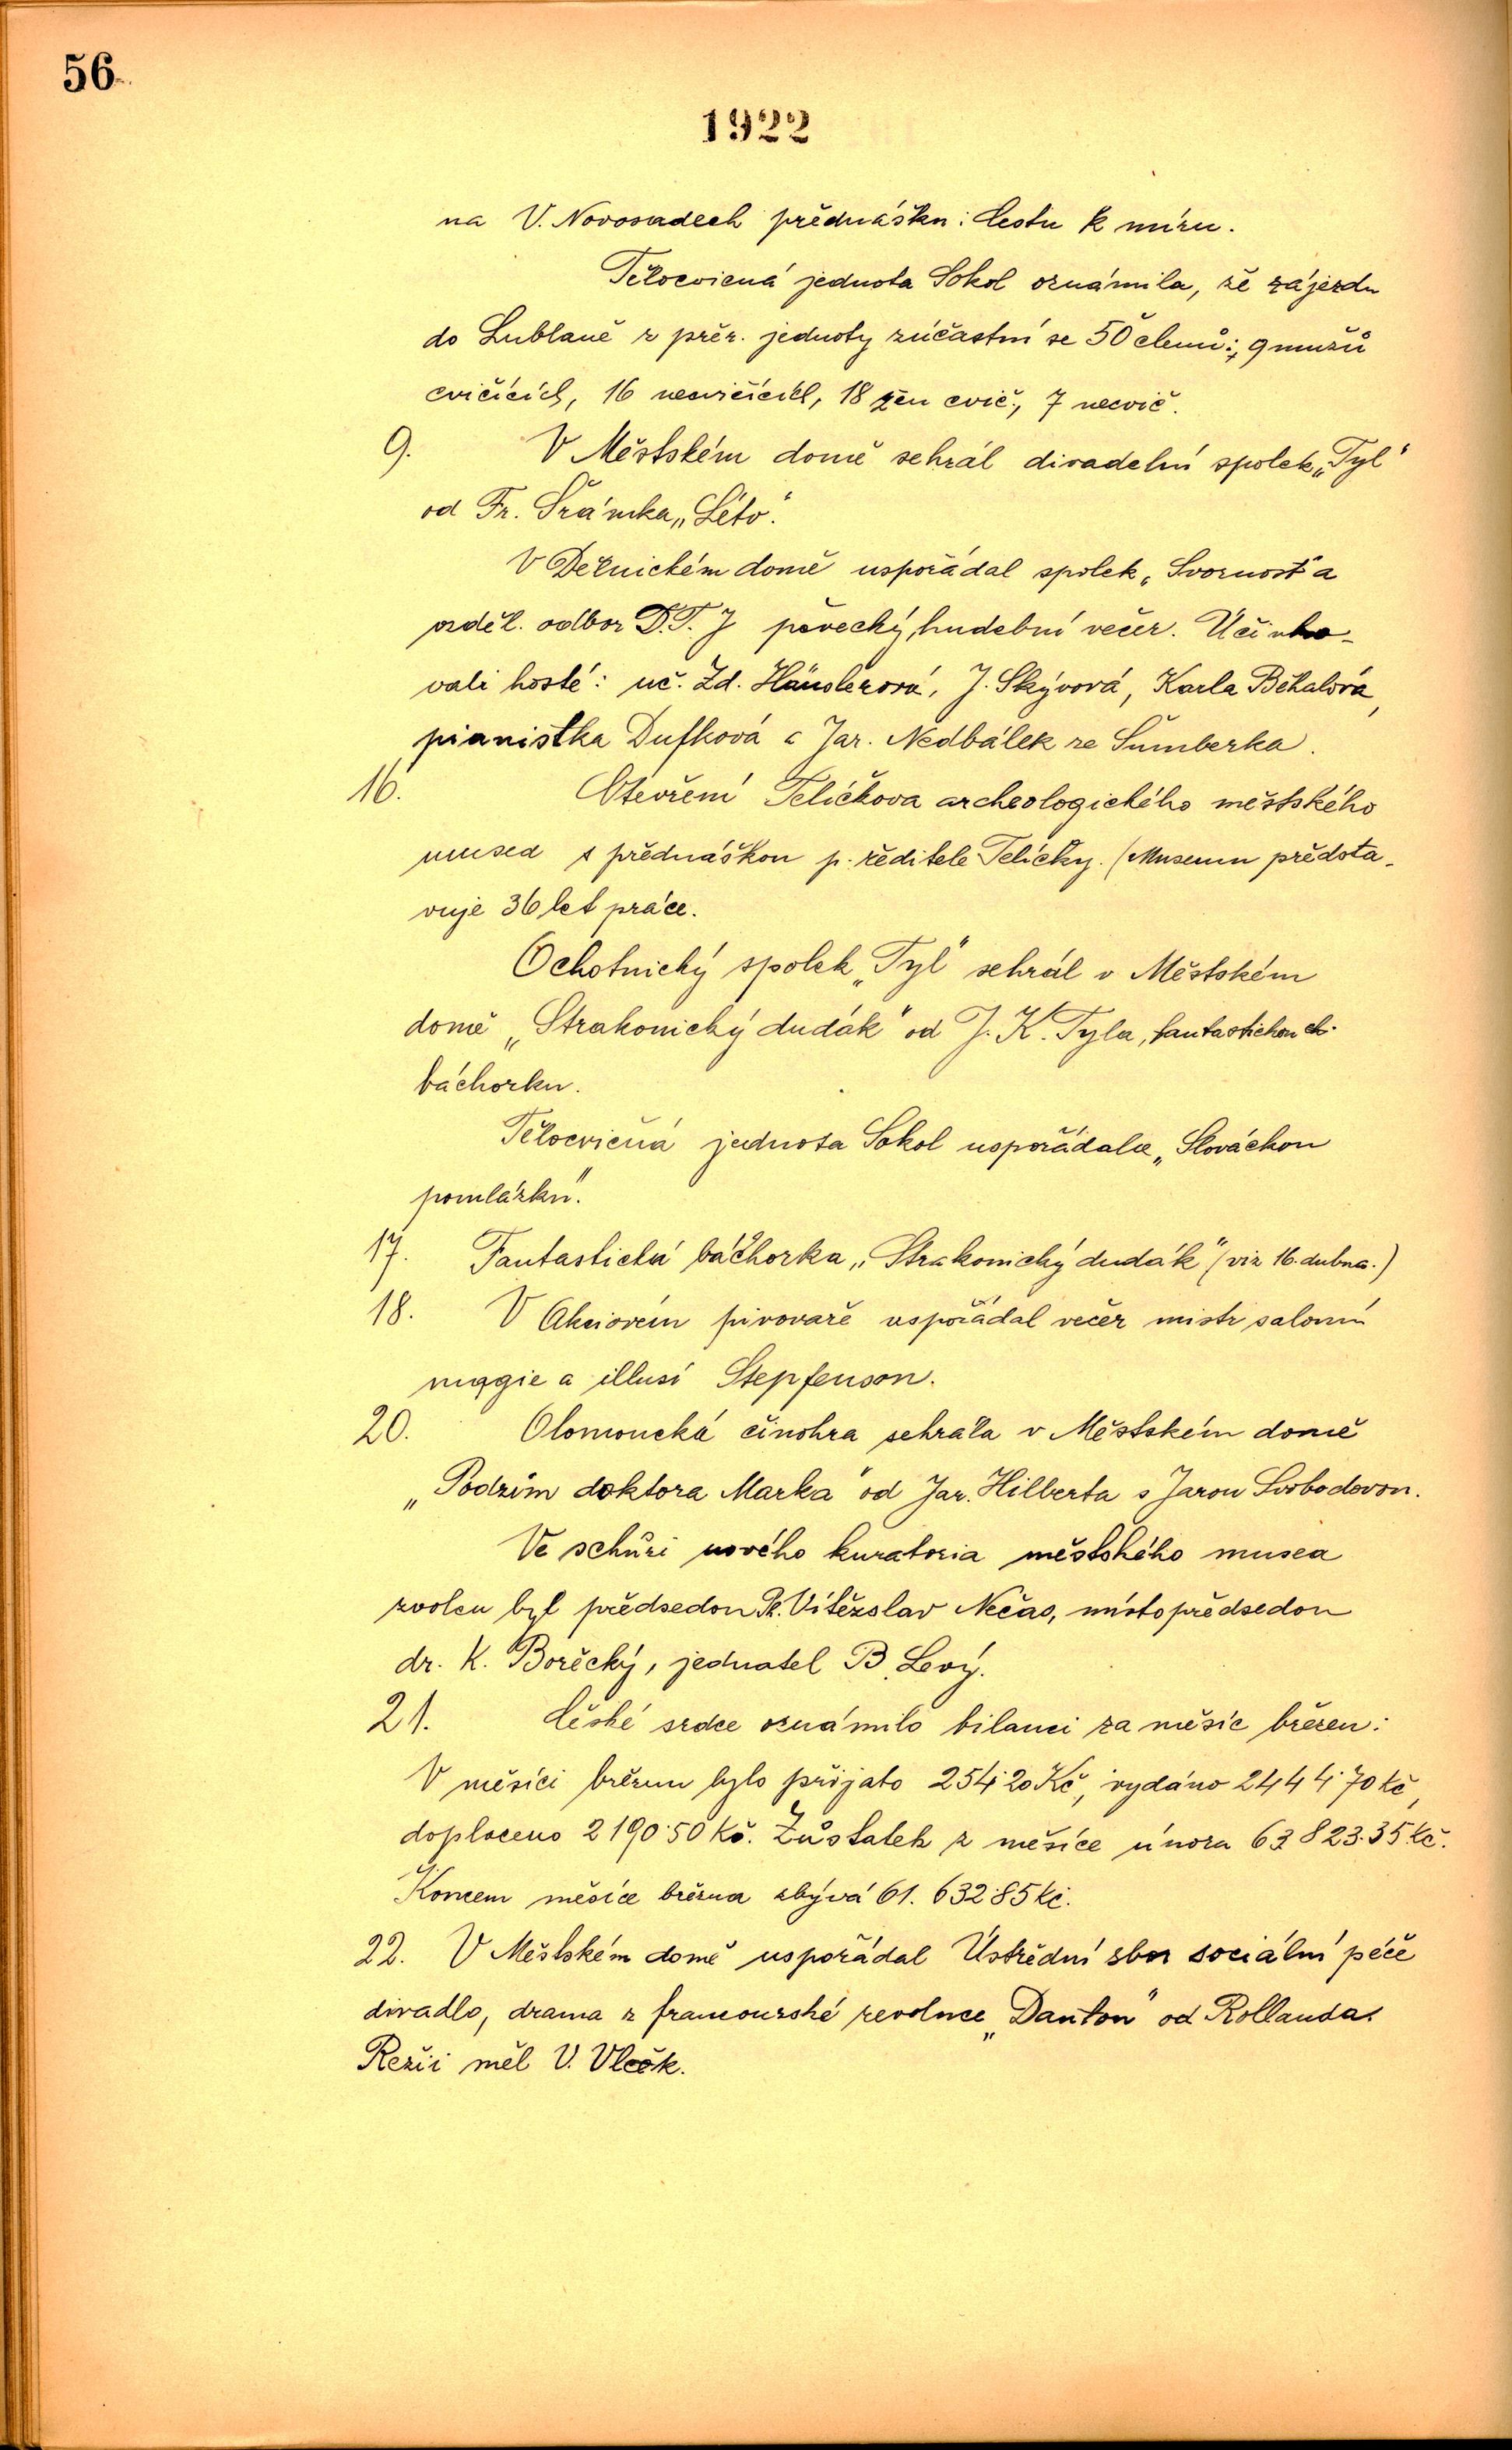 56
1922
na V. Novosadech přednášku: Cestu k míru.
Tělocvičná jednota Sokol oznámila, že zájezdu
do Lublaně z přer. jednoty zúčastní se 50 členů: 9 mužů
cvičících, 16 necvičících, 18 žen cvič., 7 necvič.
9. V Městském domě sehrál divadelní spolek „Tyl“
od Fr. Šrámka „Léto“.
V Dělnickém domě uspořádal spolek „Svornost“ a
vzděl. odbor D.T.J pěvecký, hudební večer. Účinko-
vali hosté: uč. Zd. Händlerová, J. Skývová, Karla Běhalová,
pianistka Dufková a Jar. Nedbálek ze Šumberka.
16. Otevření Teličkova archeologického městského
musea s přednáškou p. ředitele Teličky. (Museum předsta-
vuje 36 let práce.
Ochotnický spolek „Tyl“ sehrál v Městském
domě „Strakonický dudák“ od J. K. Tyla, fantastickou
báchorku.
Tělocvičná jednota Sokol uspořádala „Slováckou
pomlázku“.
17. Fantastická báchorka „Strakonický dudák“ (viz 16. dubna.)
18. V Akciovém pivovaře uspořádal večer mistr salonní
maggie a illusí Stepfenson.
20. Olomoucká činohra sehrála v Městském domě
„Podzim doktora Marka“ od Jar. Hilberta s Jarou Svobodovou.
Ve schůzi nového kuratoria městského musea
zvolen byl předsedou Vítězslav Nečas, místopředsedou
dr. K. Borěcký, jednatel B. Levý.
21. České srdce oznámilo bilanci za měsíc březen:
V měsíci březnu bylo přijato 254·20 Kč, vydáno 2444·70 Kč,
doplaceno 2190·50 Kč. Zůstatek z měsíce února 63.823·35 Kč.
Koncem měsíce března zbývá 61.632·85 Kč.
22. V Městském domě uspořádal Ústřední sbor sociální péče
divadlo, drama z francouzské revoluce „Danton“ od Rollanda.
Režii měl V. Vlček.